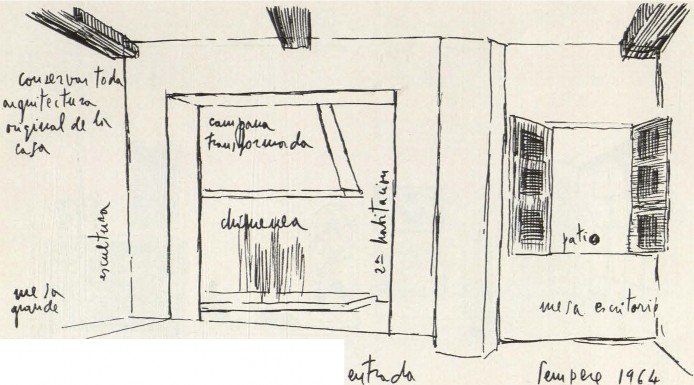 conservar toda
arquitectura
original de la
casa
campana
transformada
chimenea
escultura
2ª habitacion
patio
mesa
grande
mesa escritorio
entrada
Sempere 1964